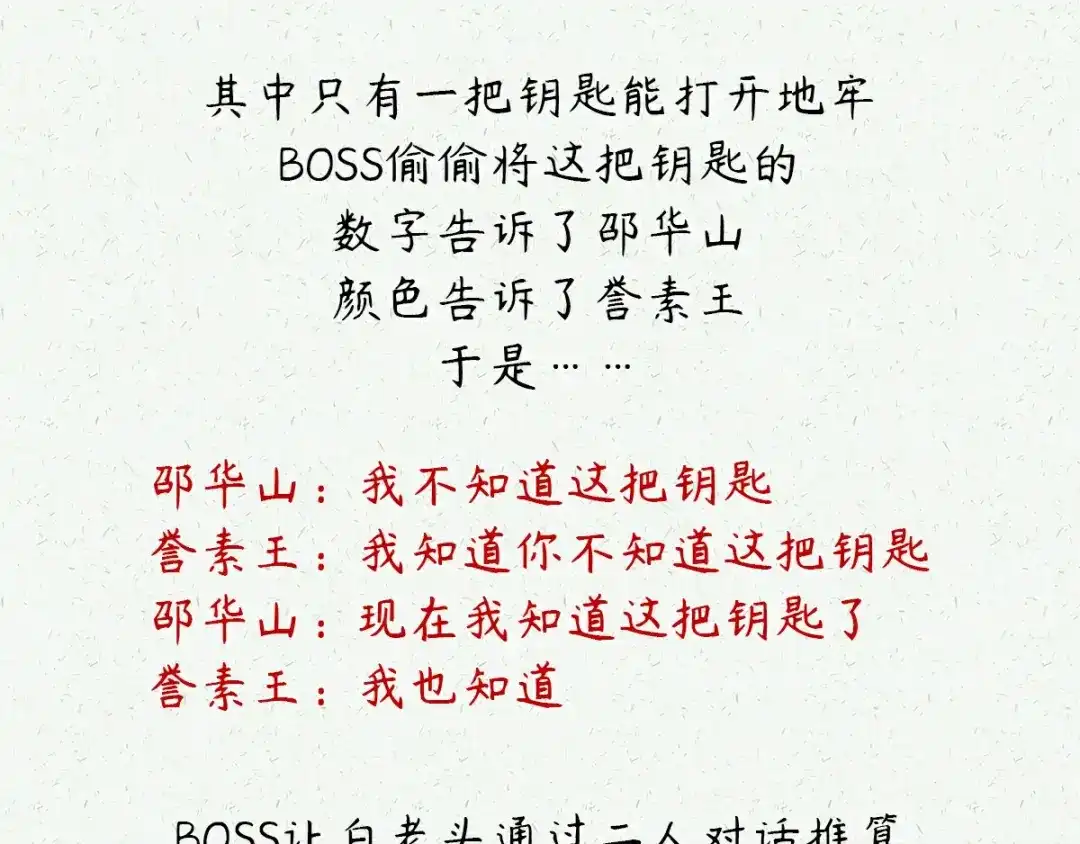 其中只有一把钥匙能打开地牢
BOSS偷偷将这把钥匙的
数字告诉了邵华山
颜色告诉了誉素王
于是……
邵华山：我不知道这把钥匙
誉素王：我知道你不知道这把钥匙
邵华山：现在我知道这把钥匙了
誉素王：我也知道
BOSS让白老头通过二人对话推算